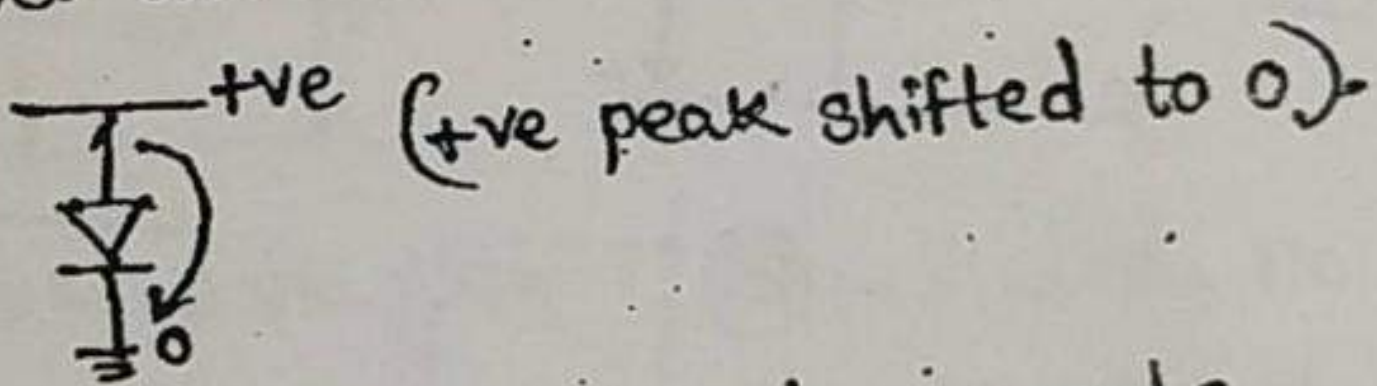 +ve (+ve peak shifted to 0).
0